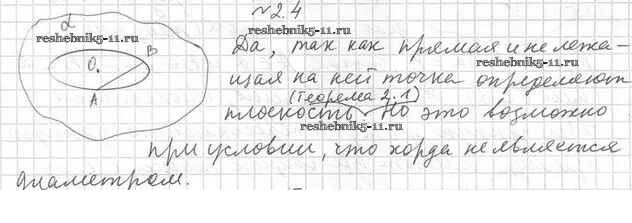 №2.4
α
reshebnik5-11.ru
B
O
A
Да, так как прямая и не лежа-
reshebnik5-11.ru
щая на ней точка определяют
(Теорема 2.1)
плоскость. Но это возможно
reshebnik5-11.ru
при условии, что хорда не является
диаметром.